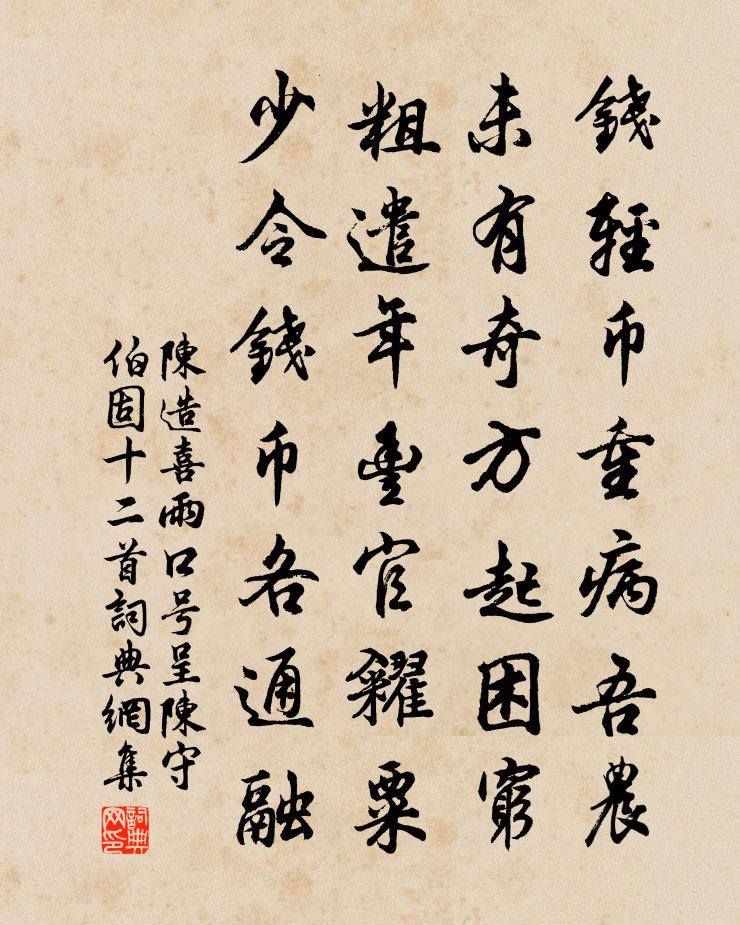 錢輕币重病吾農
未有奇方起困窮
粗遣年豊官糴粟
少令錢币各通融
陳造喜雨口号呈陳守
伯固十二首詞典網集
詞典网印